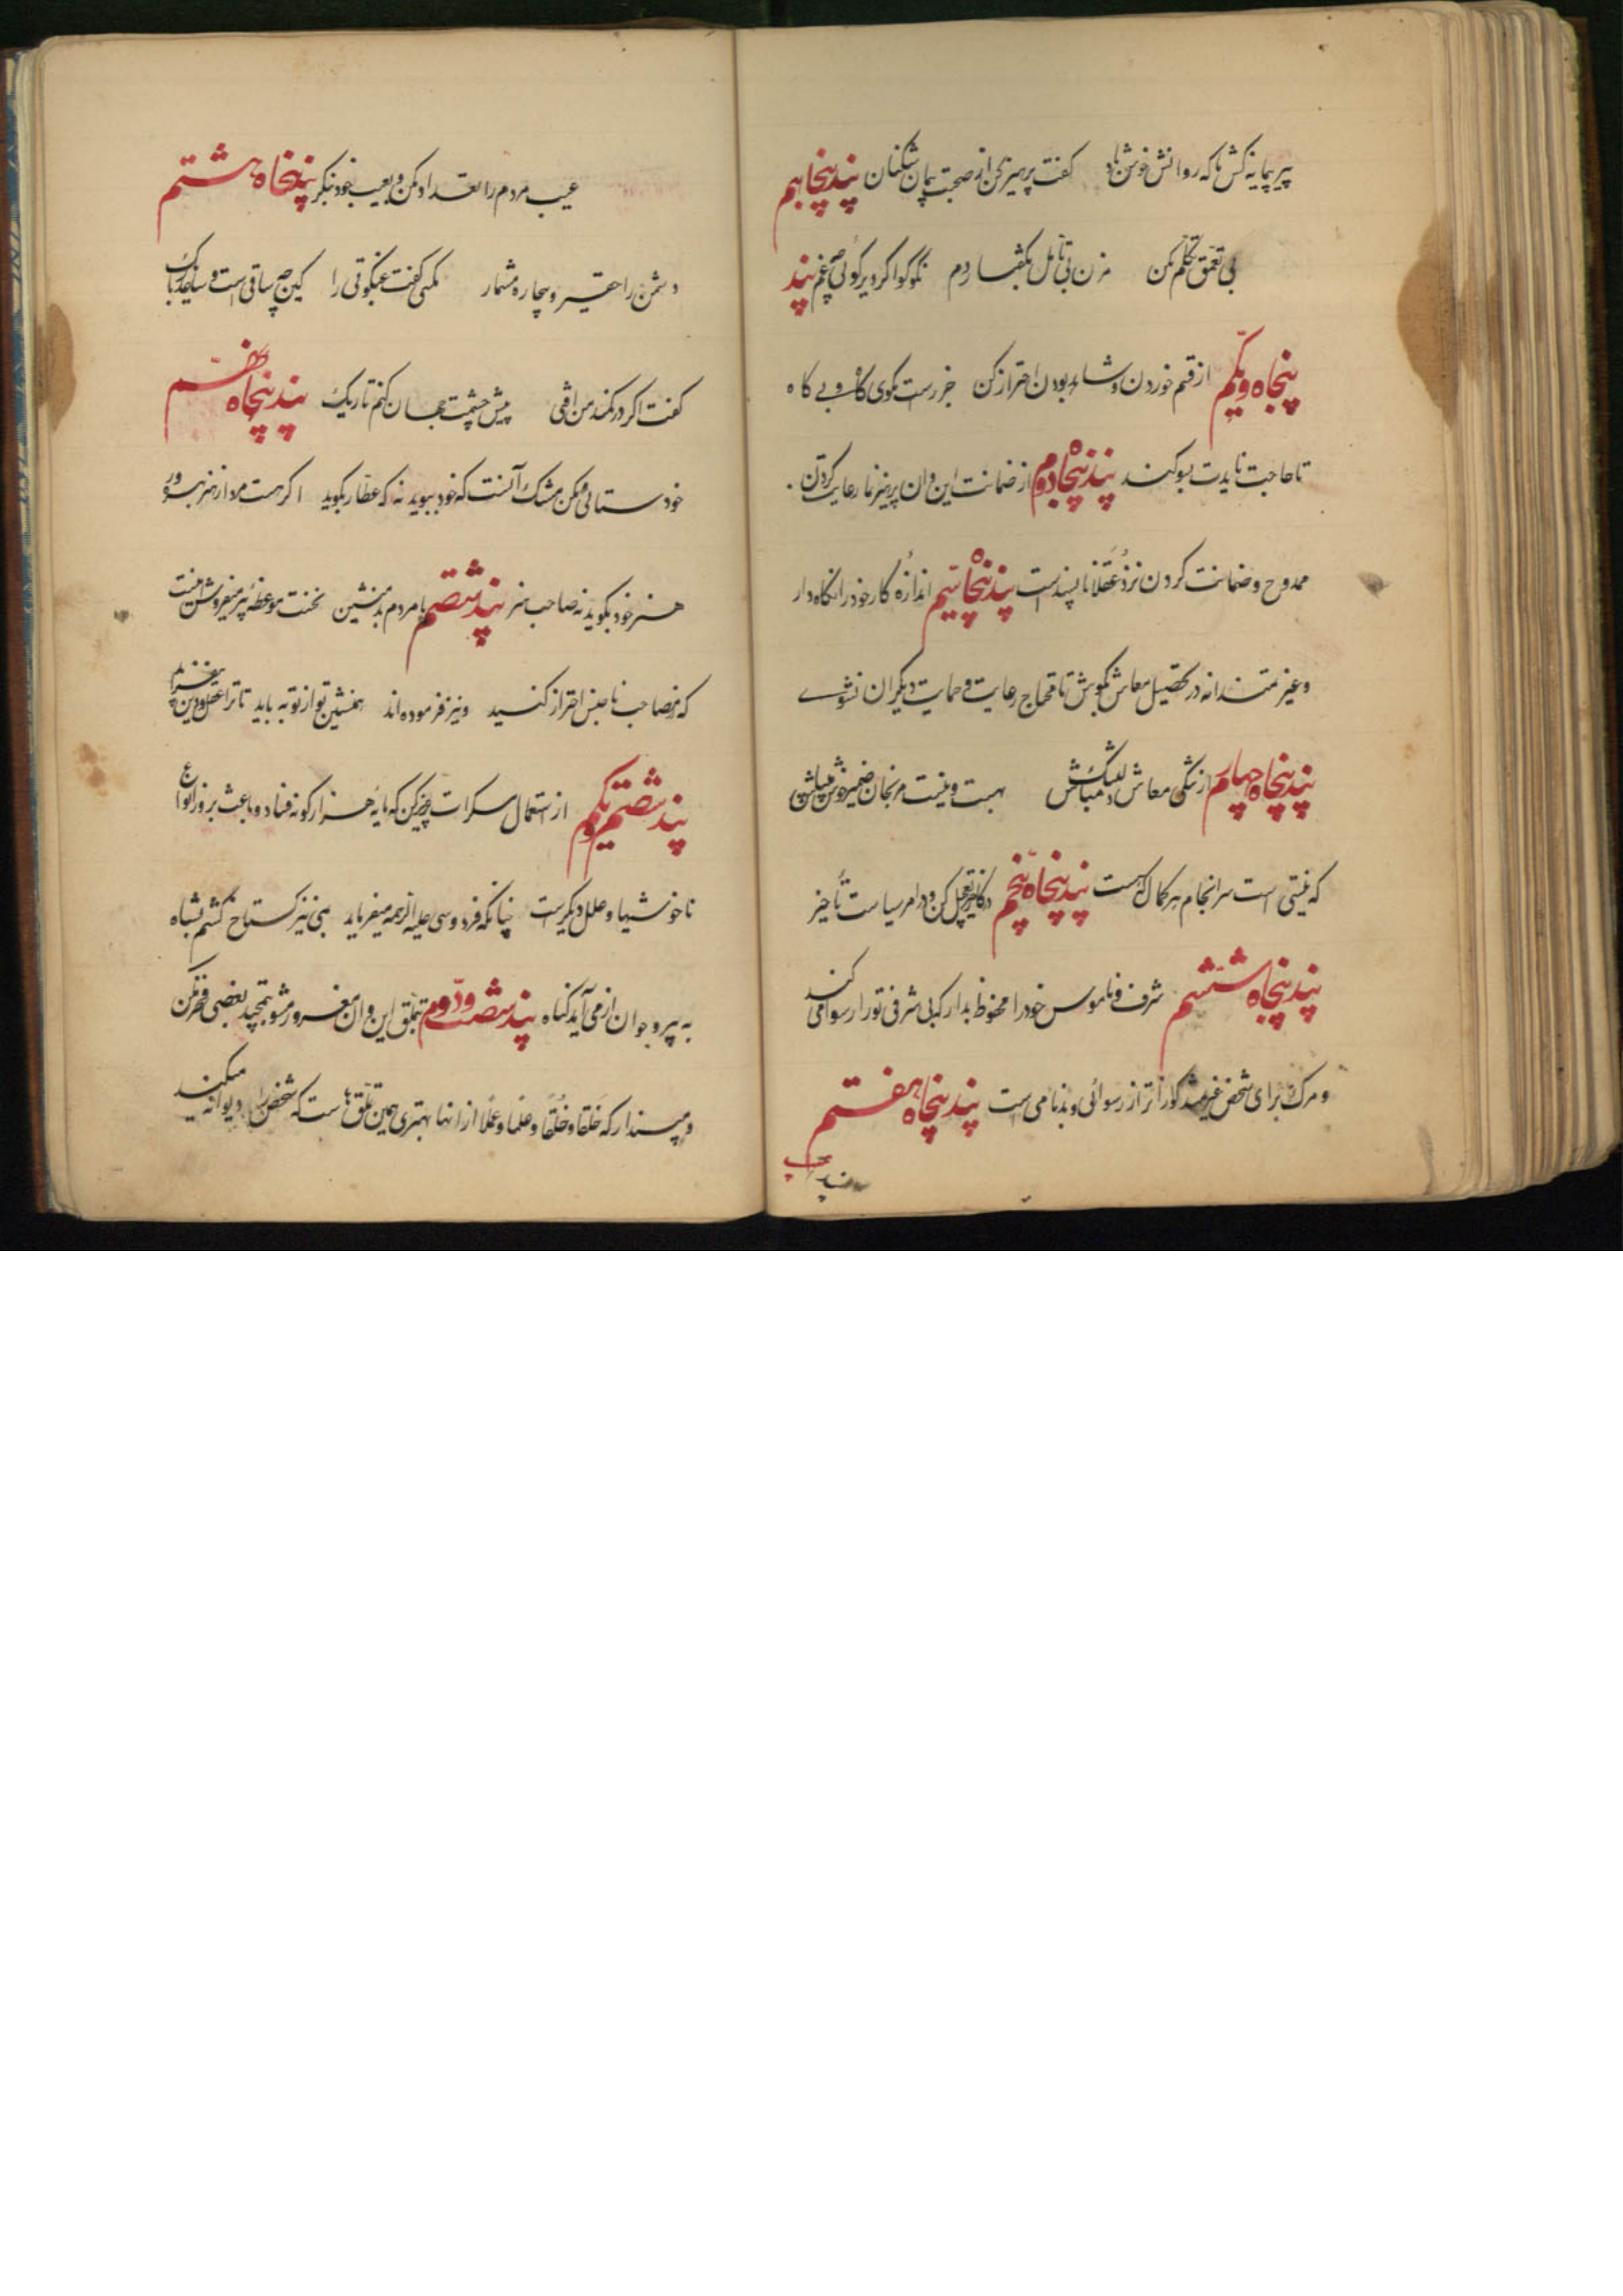 پیر پیمانه کش ما که روانش خوش باد کفت پرهیز کن از صحبت پیمان شکنان پند پنجاهم
بی تعمّق تکلّم مکن مزن بی تأمّل بگفتار دم نکو گو اگر دیر گوئی چه غم پند
پنجاه و یکم از قسم خوردن و شاهد بودن احتراز کن جز راست مگوی گاه و بے گاه
تا حاجت نایدت بسوکند پند پنجاه دوم از ضمانت این و ان پرهیز نما رعایت کردن
ممدوح و ضمانت کردن نزد عقلا ناپسند است پند پنجاه سیّم اندازهٔ کار خود را نکاه دار
و غیرتمندانه در تحصیل معاش بکوش تا محتاج رعایت و حمایت دیکران نشوے
پند پنجاه چهارم از تنکی معاش دلتنک مباش بهست و نیست مرنجان ضمیر و خوش میباش
که نیستی است سرانجام هر کمال که هست پند پنجاه پنجم در کار خیر تعجیل کن و در امر سیاست تأخیر
پند پنجاه ششم شرف و ناموس خود را محفوظ بدار که بی شرفی تو را رسوا می کند
و مرک برای شخص غیرتمند کواراتر از رسوائی و بدنامی است پند پنجاه هفتم
عیب مردم را تعداد مکن و بعیب خود نکر پند پنجاه هشتم
دشمن را حقیر و بیچاره مشمار مکسی کفت عنکبوتی را کین چه ساقی است و ساعد باریک
کفت اکر در کمند من افتی پیش چشمت جهان کنم تاریک پند پنجاه نهم
خودستائی مکن مشک آنست که خود ببوید نه که عطّار بکوید اکر هست مرد از هنر بهره ور
هنر خود بکوید نه صاحب هنر پند شصتم با مردم بد منشین نخست موعظهٔ پیر میفروش اینست
که از مصاحب ناجنس احتراز کنید و نیز فرموده اند همنشین تو از تو به باید تا ترا عقل و دین بیفزاید
پند شصتم و یکم از استعمال مسکرات پرهیز کن که مایهٔ هزار کونه فساد و باعث بروز انواع
ناخوشیها و علل دیکر است چنانکه فردوسی علیه الرحمه میفرماید بمی نیز کستاخ کشتم بشاه
به پیر و جوان از می آید کناه پند شصت و دوّم بتملّق این و ان مغرور مشو بتمجید بعضی فخر مکن
و مپندار که خَلقا و خُلقاً و علما و عملاً از انها بهتری همین تملّق هاست که شخص را دیوانه میکند